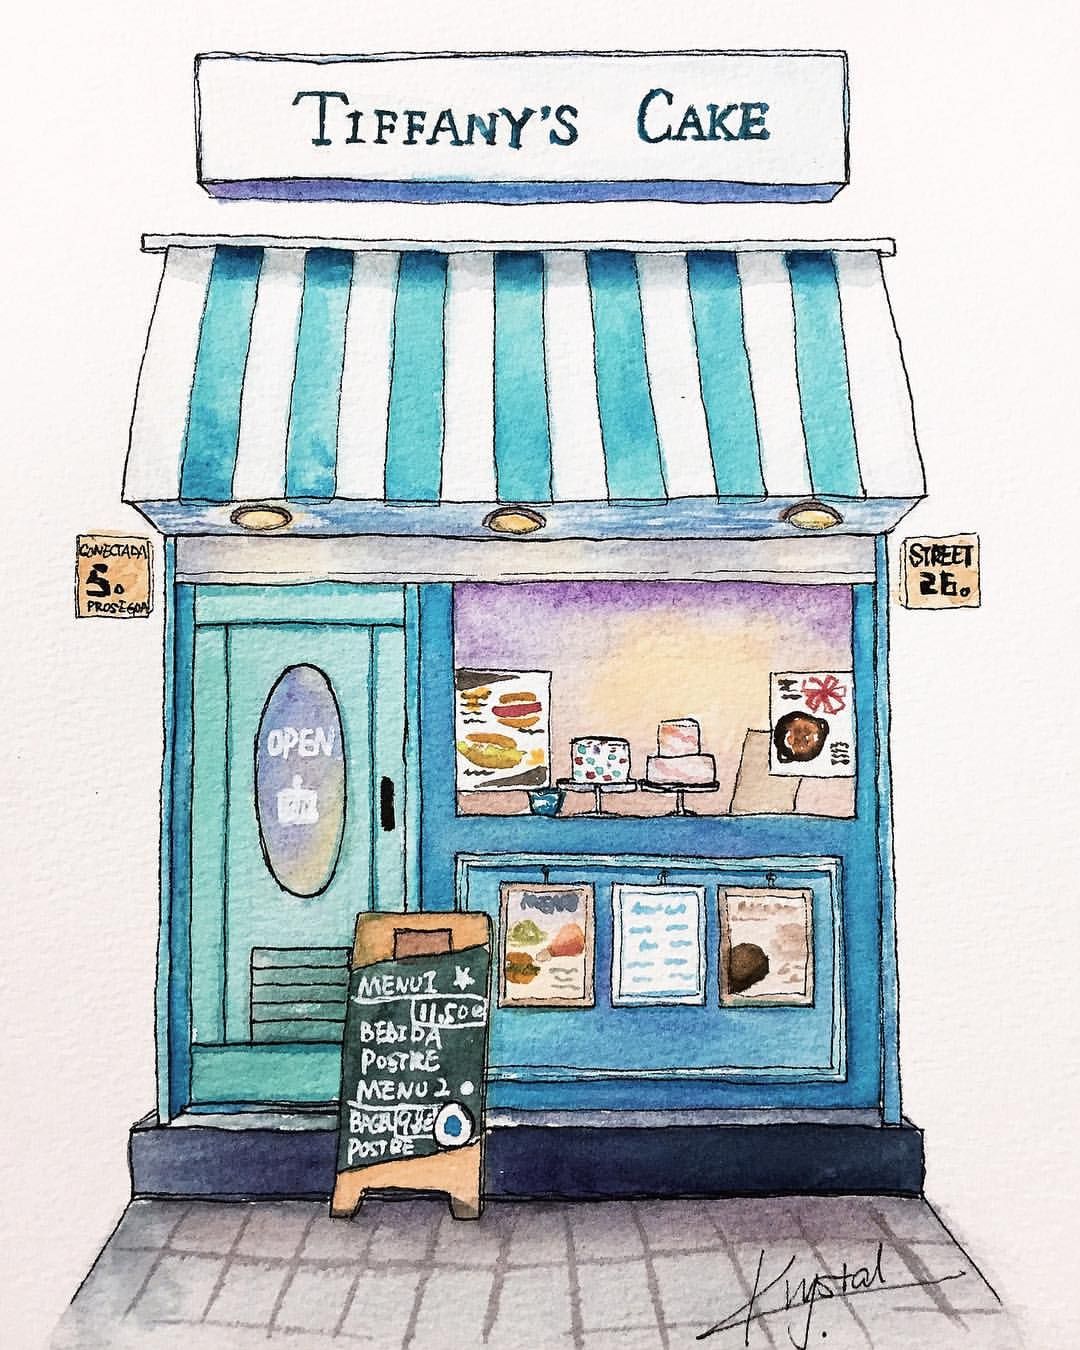 TIFFANY'S CAKE
CONECTADA
5.
PROSEGOA
STREET
26.
OPEN
MENU
MENU1
11,50€
BEBIDA
POSTRE
MENU 2
POSTRE
Krystal